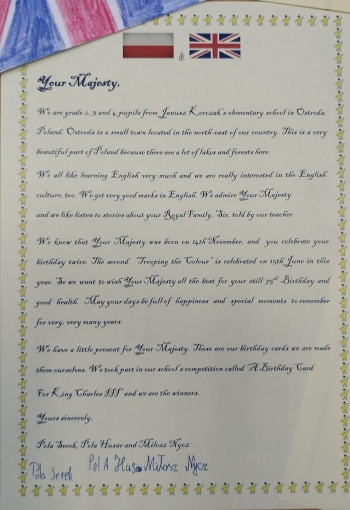 &
Your Majesty,
We are grade 2, 3 and 4 pupils from Janusz Korczak's elementary school in Ostroda,
Poland. Ostroda is a small town located in the north-east of our country. This is a very
beautiful part of Poland because there are a lot of lakes and forests here.
We all like learning English very much and we are really interested in the English
culture, too. We get very good marks in English. We admire Your Majesty
and we like listen to stories about your Royal Family, Sir, told by our teacher.
We know that Your Majesty was born on 14th November, and you celebrate your
birthday twice. The second "Trooping the Colour" is celebrated on 15th June in this
year. So we want to wish Your Majesty all the best for your still 75th Birthday and
good health. May your days be full of happiness and special moments to remember
for very, very many years.
We have a little present for Your Majesty. Those are our birthday cards we are made
them ourselves. We took part in our school's competition called "A Birthday Card
For King Charles III" and we are the winners.
Yours sincerely,
Pola Serek, Pola Husar and Milosz Nycz
Pola Serek Pol A Husa Miłosz Nycz